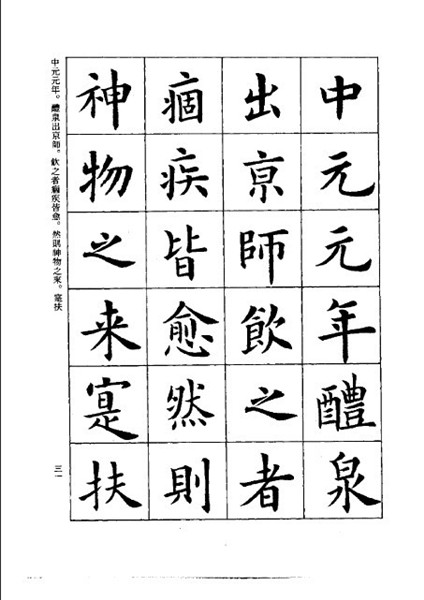 中元元年醴泉
出京師飲之者
痼疾皆愈然則
神物之来寔扶
中元元年。醴泉出京師。飲之者痼疾皆愈。然則神物之来。寔扶
三一